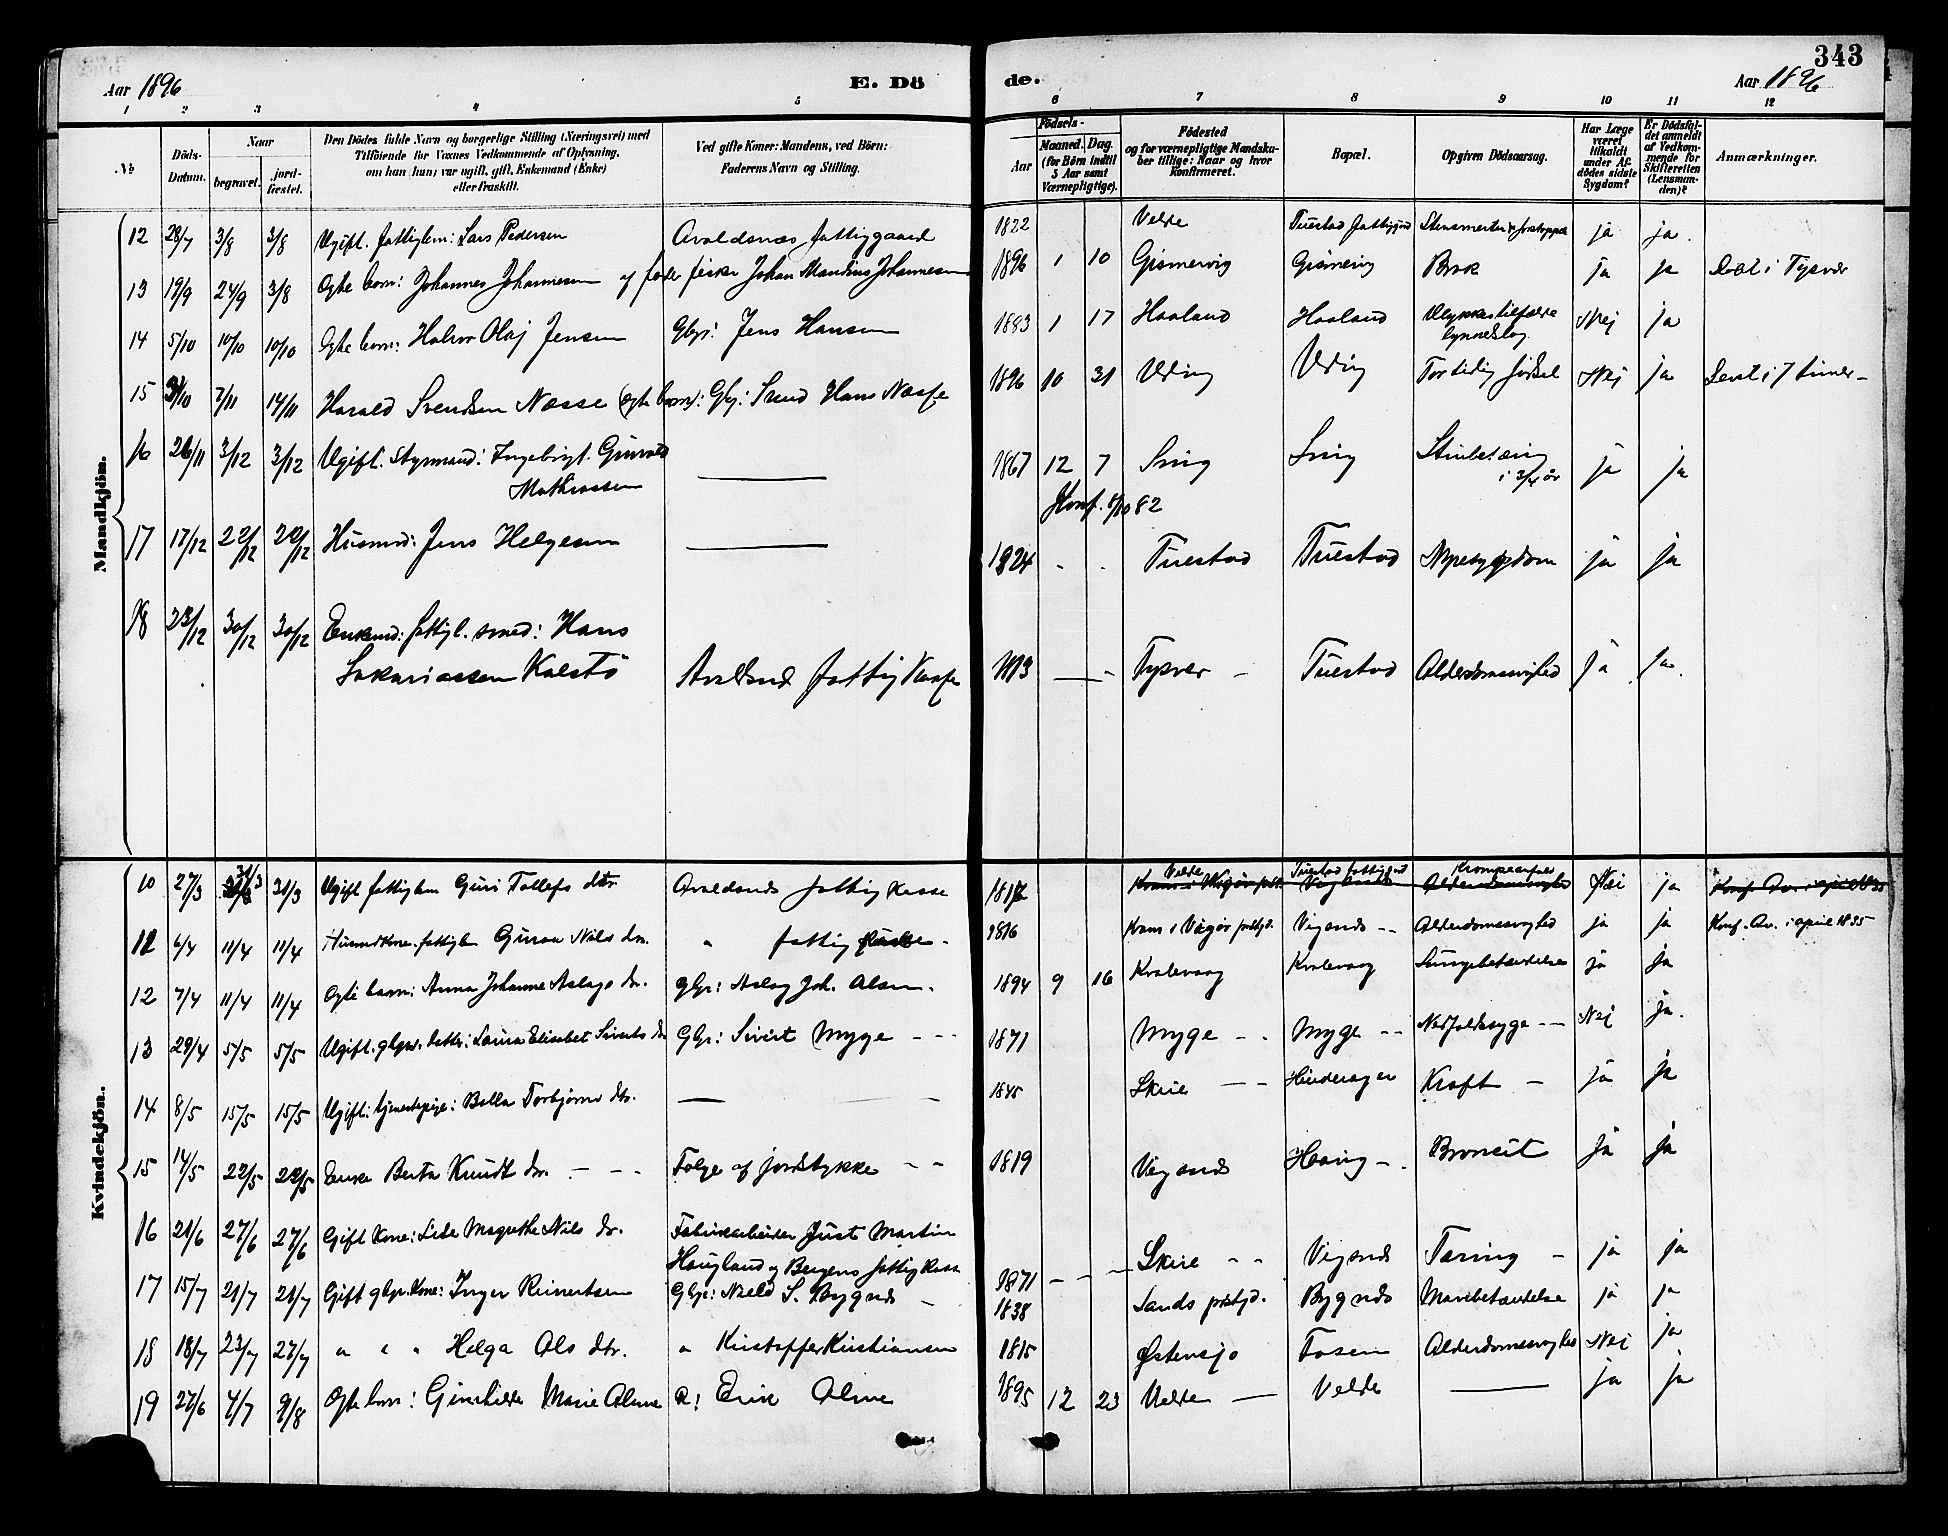 343
Aar 1896 E. Dö de. Aar 1896
1 2 3 4 5 6 7 8 9 10 11 12
No Döds-Datum. Naar begravet. jord-fæstet. Den Dödes fulde Navn og borgerlige Stilling (Næringsvei) med Tilföiende for Voxnes Vedkommende af Oplysning, om han (hun) var ugift, gift, Enkemand (Enke) eller fraskilt. Ved gifte Koner: Mandens, ved Börn: Faderens Navn og Stilling. Födsels- Aar Maaned. Dag. (for Börn indtil 5 Aar samt Værnepligtige). Födested og for værnepligtige Mandskaber tillige: Naar og hvor Konfirmeret. Bopæl. Opgiven Dödsaarsag. Har Læge været tilkaldt under Afdödes sidste Sygdom? Er Dödsfaldet anmeldt af Vedkommende for Skifteretten (Lensmanden)? Anmærkninger.
Mandkjön.
12 28/7 3/8 3/8 Ugift. fattiglem: Lars Pedersen Avaldsnæs fattiggaard 1822 Velde Tuestad ja ja.
13 19/9 24/9 3/8 Ægte barn: Johannes Johannesen af fader fisker Johan Mandius Johannesen 1896 1 10 Gismervig Gismervig Brok ja ja Døbt i Tysvær
14 5/10 10/10 10/10 Ægte barn: Halvor Olaj Jensen Gbr: Jens Hansen 1883 1 17 Haaland Haaland Ulykkestilfælde Nej ja
15 31/10 7/11 14/11 Harald Svendsen Næsse (ægte barn): Gbr: Svend Hans Næsse 1896 10 31 Vedvig Vedvig For tidlig fødsel Nej ja Levet i 7 timer -
16 26/11 3/12 3/12 Ugift. Styrmand: Ingebrigt Mathiassen 1867 12 7 Snig Snig i 3/4 år ja ja
Konf. 1/10 82
17 17/12 22/12 22/12 Husmd: Jens Helgesen 1824 Tuestad Tuestad Nyresygdom ja ja
18 23/12 30/12 30/12 Enkemd: fattigl. smed: Hans
Sakariassen Kalstø Avaldsnæs fattig Kasse 1813 Tysvær - Tuestad Alderdomssvaghed ja ja.
Kvindekjön.
10 27/3 31/3 31/3 Ugift fattiglem Guri Tollefs dtr. Avaldsnæs fattig Kasse 1817 Velde Tuestad fattiggd Nei ja
12 6/4 11/4 11/4 Husmdkone. fattiglem Nils dtr. " fattig Kasse - 1816 Kvam i Vigør prstgj. Vigsnæs -- Alderdomssvaghed ja ja Konf. Av. i april 1835
12 7/4 11/4 11/4 Ægte barn: Anna Johanne Aslags dr. gbr: Aslag Joh. Olsen. 1894 9 16 Kvalevaag Kvalevaag Lungebetændelse ja ja
13 29/4 5/5 5/5 Ugift. gbrs. datter: Laura Elisabet Siverts dr Gbr: Sivert Myge - - - 1871 Myge - - Myge -- Nedfaldssyge -- Nej ja.
14 8/5 15/5 15/5 Ugift: tjenestepige: Bolla Torbjørns dtr. 1845 Skeie - - Hinderager Kræft - ja ja
15 14/5 22/5 22/5 Enke Berta Knudt dr. - - - Følge af jordstykke - - 1819 Vigsnæs Havig -. Bronkit ja ja
16 21/6 27/6 27/6 Gift Kone: Lide Magrethe Nils dr. Fabrikarbeider Just Martin
Haugland og Bergens fattig Kasse 1871 Skeie - - Vigsnæs Tæring - ja ja
17 15/7 21/7 21/7 Gift gbr. Kone: Inger Reinertsen Gbr: S. Bygnæs - 1838 Sands prstgjd. Bygnæs Mavebetændelse ja ja
18 18/7 23/7 27/7 " " " Helga Ols dtr. " Kristoffer Kristiansen 1815 Østensjo Fosen Alderdomssvaghed Nej ja
19 27/6 4/7 9/8 Ægte barn: Gunhilde Marie Olsne G: Erik Olsne 1895 12 23 Velde - Velde ja ja